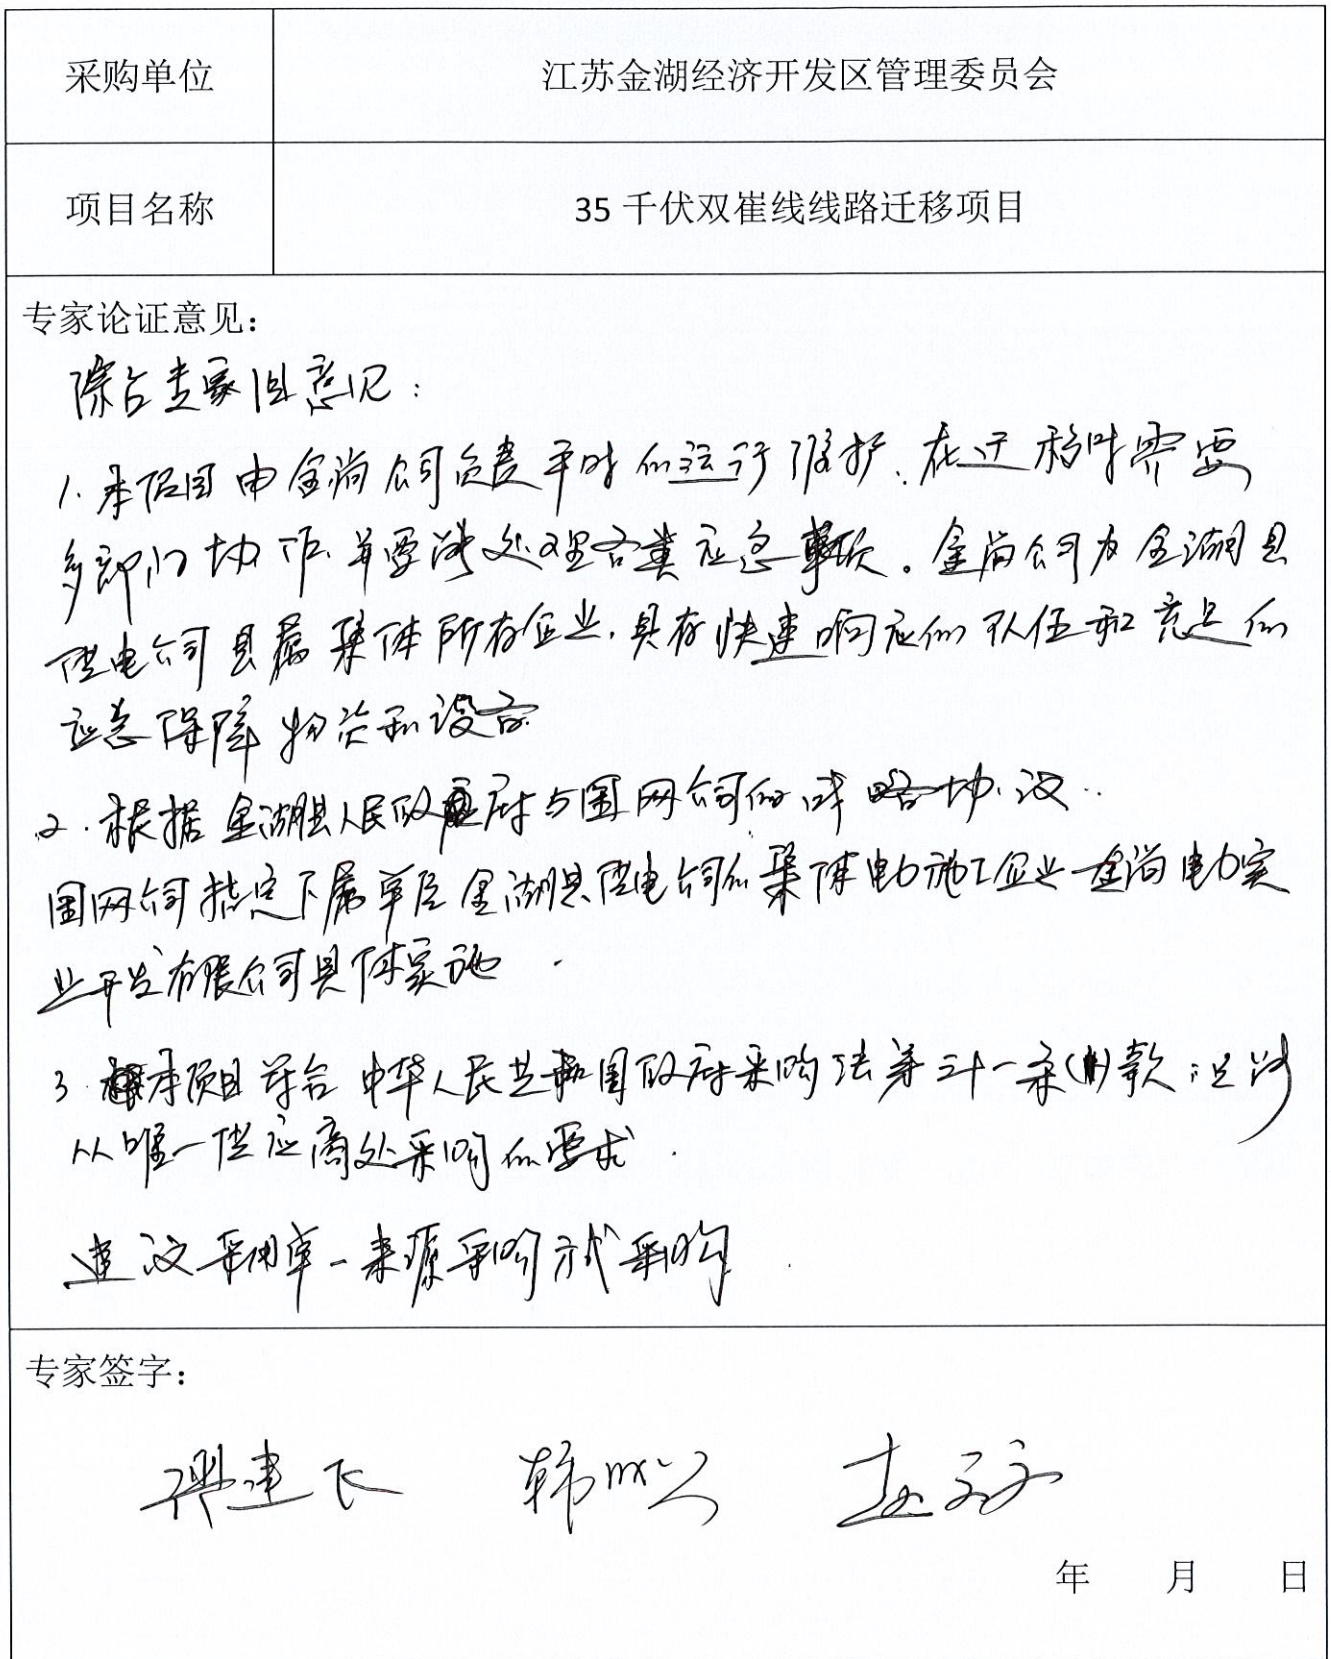 采购单位 江苏金湖经济开发区管理委员会
项目名称 35 千伏双崔线线路迁移项目
专家论证意见：
综合专家组意见：
1. 本项目由金尚公司负责平时的运行维护、在迁移时需要
多部门协作、并要涉处理各类应急事故。金尚公司为金湖县
供电公司县属集体所有企业，具有快速响应的队伍和充足的
应急保障物资和设备
2. 根据金湖县人民政府与国网公司的战略协议..
国网公司指定下属单位金湖县供电公司的集体电力施工企业-金尚电力实
业开发有限公司具体实施.
3. 本项目符合中华人民共和国政府采购法第三十一条(1)款:只能
从唯一供应商处采购的要求.
建议采用单一来源采购方式采购
专家签字：
年 月 日